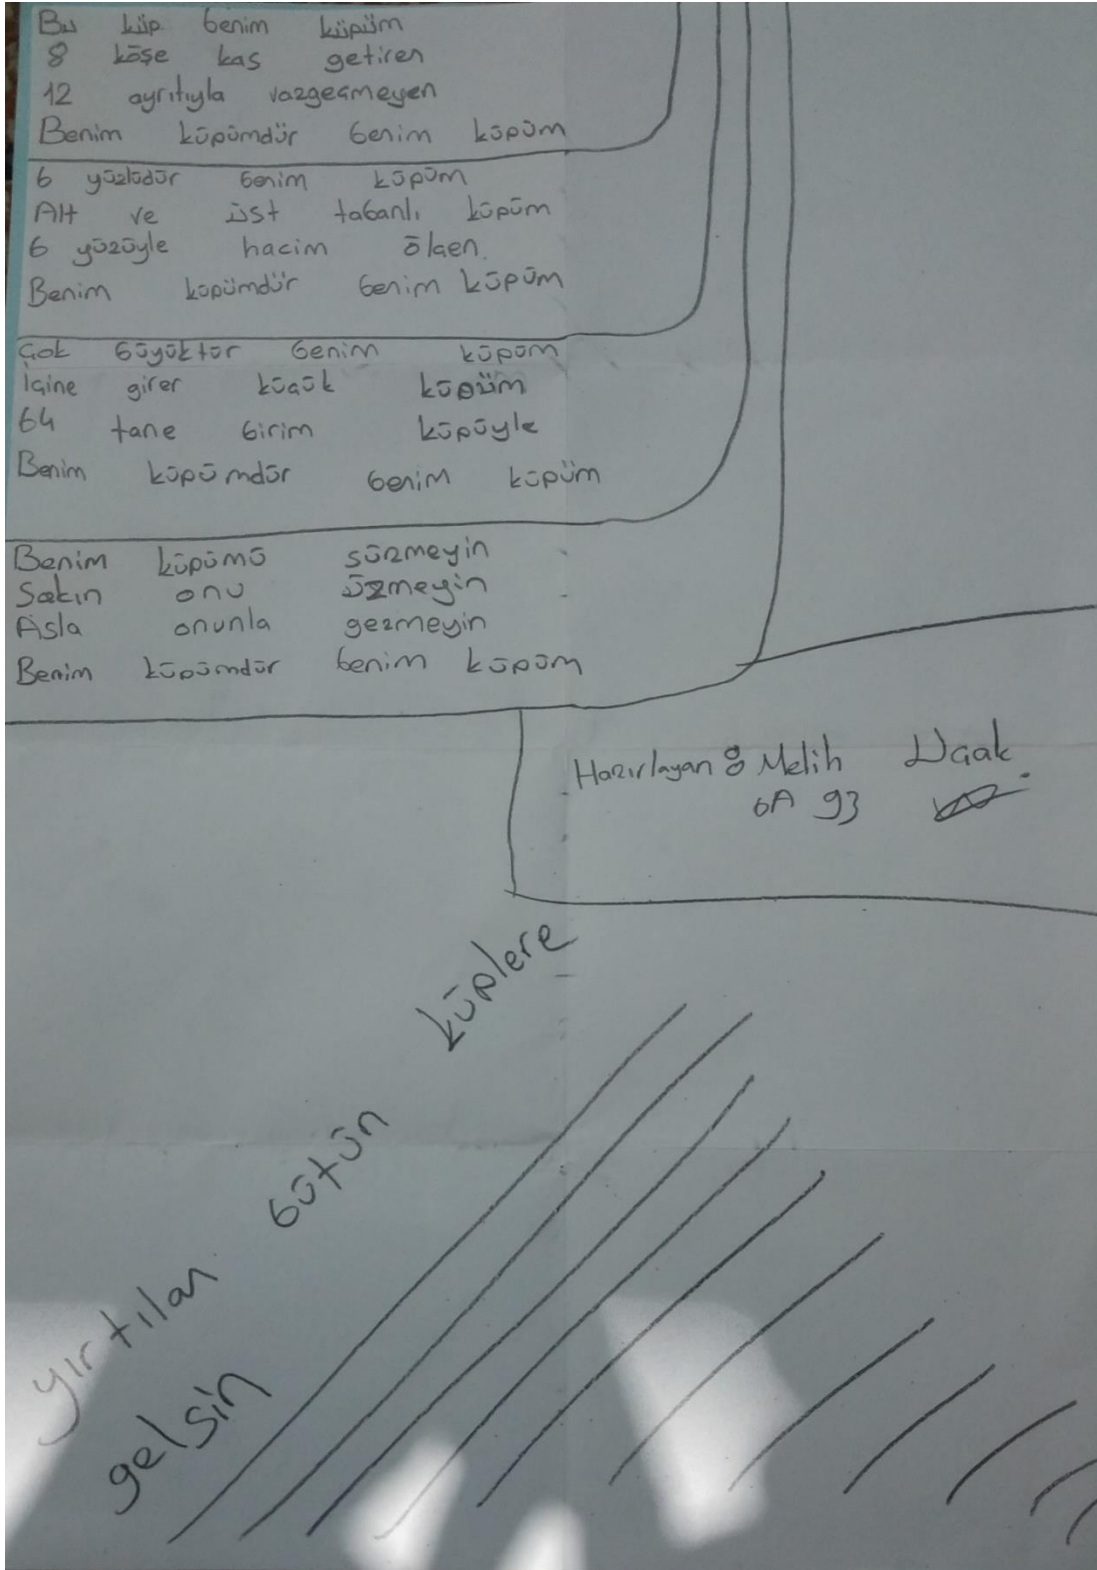 Bu küp benim küpüm
8 köşe kas getiren
12 ayrıtıyla vazgeçmeyen
Benim küpümdür benim küpüm
6 yüzlüdür benim küpüm
Alt ve üst tabanlı küpüm
6 yüzüyle hacim ölçen
Benim küpümdür benim küpüm
Çok büyüktür benim küpüm
İçine girer küçük küpüm
64 tane birim küpüyle
Benim küpümdür benim küpüm
Benim küpümü süzmeyin
Sakın onu üzmeyin
Asla onunla gezmeyin
Benim küpümdür benim küpüm
Hazırlayan: Melih Uçak
6A 93
yırtılan bütün küplere
gelsin